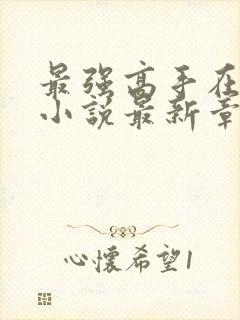 最强高手在
小说最新章
心怀希望1